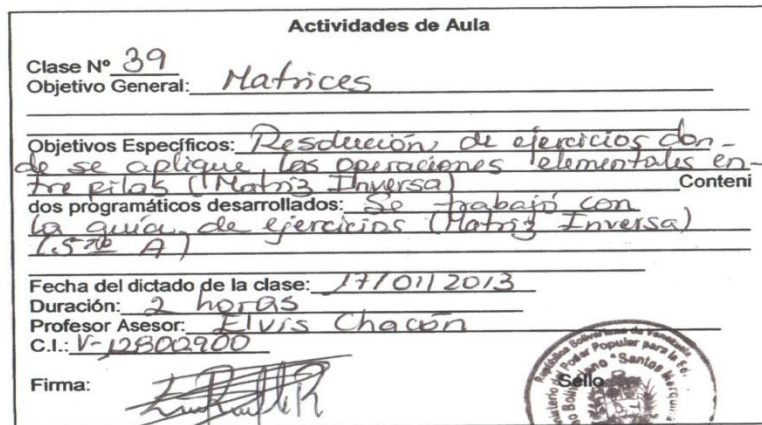 Actividades de Aula
Clase Nº 39
Objetivo General: Matrices
Objetivos Específicos: Resolución de ejercicios don-
de se aplique las operaciones elementales en-
tre filas (Matriz Inversa) Conteni
dos programáticos desarrollados: Se trabajó con
la guía de ejercicios (Matriz Inversa)
(5to A)
Fecha del dictado de la clase: 17/01/2013
Duración: 2 horas
Profesor Asesor: Elvis Chacón
C.I.: V-12802900
Firma: Sello
República Bolivariana de Venezuela
Poder Popular para la
"Santos Marquina